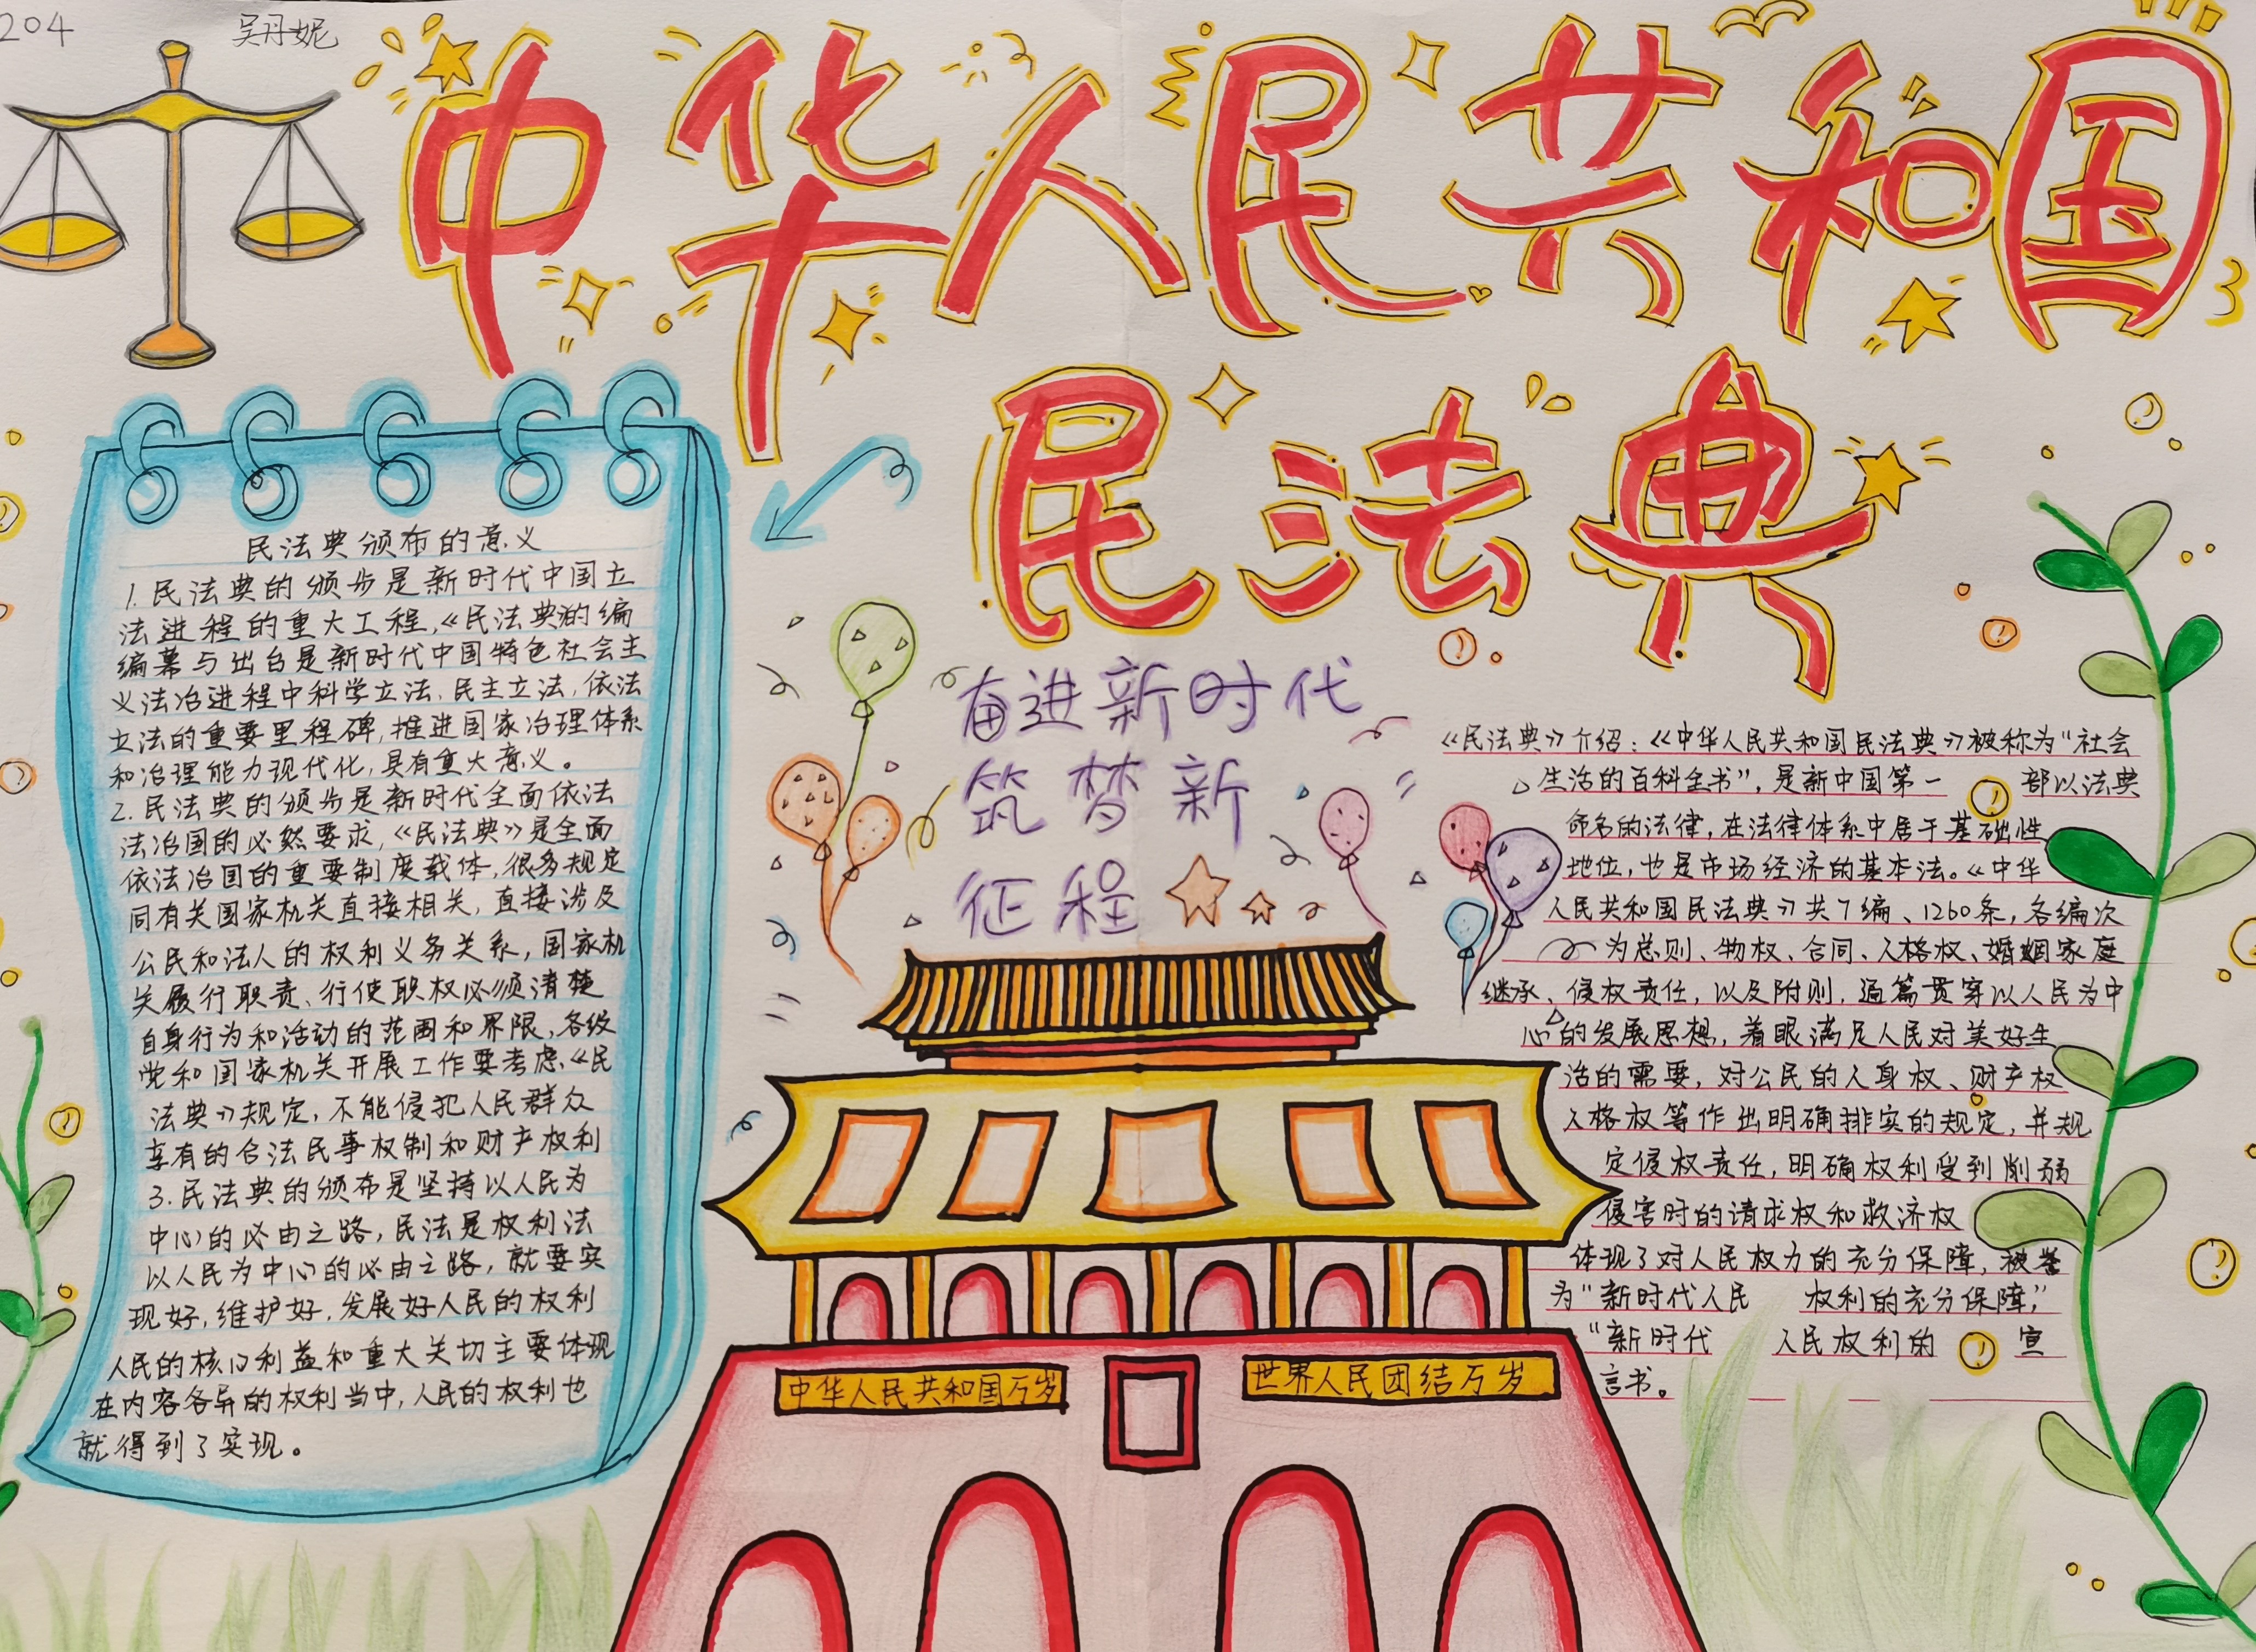 204
吴丹妮
中华人民共和国
民法典
民法典颁布的意义
1.民法典的颁步是新时代中国立
法进程的重大工程,《民法典的编
编幕与出台是新时代中国特色社会主
义法冶进程中科学立法,民主立法,依法
立法的重要里程碑,推进国家治理体系
和治理能力现代化,具有重大意义。
2.民法典的颁步是新时代全面依法
法冶国的必然要求,《民法典》是全面
依法冶国的重要制度载体,很多规定
同有关国家机关直接相关,直接涉及
公民和法人的权利义务关系,国家机
关履行职责、行使职权必须清楚
自身行为和活动的范围和界限,各级
党和国家机关开展工作要考虑《民
法典》规定,不能侵犯人民群众
享有的合法民事权制和财产权利
3.民法典的颁布是坚持以人民为
中心的必由之路,民法是权利法
以人民为中心的必由之路,就要实
现好,维护好,发展好人民的权利
人民的核心利益和重大关切主要体现
在内容各异的权利当中,人民的权利也
就得到了实现。
奋进新时代
筑梦新
征程
《民法典》介绍:《中华人民共和国民法典》被称为“社会
生活的百科全书”,是新中国第一部以法典
命名的法律,在法律体系中居于基础性
地位,也是市场经济的基本法。《中华
人民共和国民法典》共7编、1260条,各编次
为总则、物权、合同、人格权、婚姻家庭
继承、侵权责任,以及附则,通篇贯穿以人民为中
心的发展思想,着眼满足人民对美好生
活的需要,对公民的人身权、财产权
人格权等作出明确排实的规定,并规
定侵权责任,明确权利受到削弱
侵害时的请求权和救济权
体现了对人民权力的充分保障,被誉
为“新时代人民权利的充分保障”
“新时代人民权利的宣
言书。
中华人民共和国万岁
世界人民团结万岁